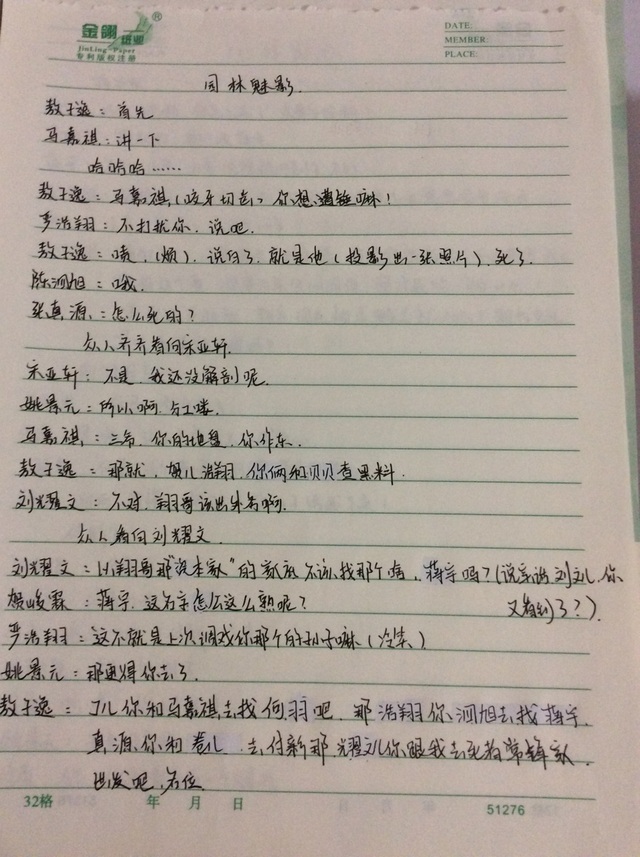 金翎纸业®
JinLing Paper
专利版权注册
DATE:
MEMBER:
PLACE:
园林魅影.
敖子逸：首先
马嘉祺：讲一下
哈哈哈……
敖子逸：马嘉祺,(咬牙切齿)你想遭锤嘛!
严浩翔：不打扰你.说吧.
敖子逸：啧,(烦).说白了.就是他(投影出一张照片).死了.
陈泗旭：哦.
张真源：怎么死的?
众人齐齐看向宋亚轩.
宋亚轩：不是.我还没解剖呢.
姚景元：所以啊.
马嘉祺：三爷.你的地盘.你作东.
敖子逸：那就.贺儿浩翔.你俩和贝贝查黑料.
刘耀文：不对.翔哥该出外务啊.
众人看向刘耀文.
刘耀文：以翔哥那"资本家"的氣质不该找那个啥.蒋宇吗?(说宇谐刘文儿.你
贺峻霖：蒋宇.这名字怎么这么熟呢? 又看到了?).
严浩翔：这不就是上次调戏你那个的孙子嘛(冷笑)
姚景元：那更得你去了.
敖子逸：丁儿你和马嘉祺去找何羽吧.那浩翔你泗旭去找蒋宇.
真源.你和 去付新那.耀文儿你跟我去死者常锋家.
出发吧.各位.
32格 年 月 日 51276